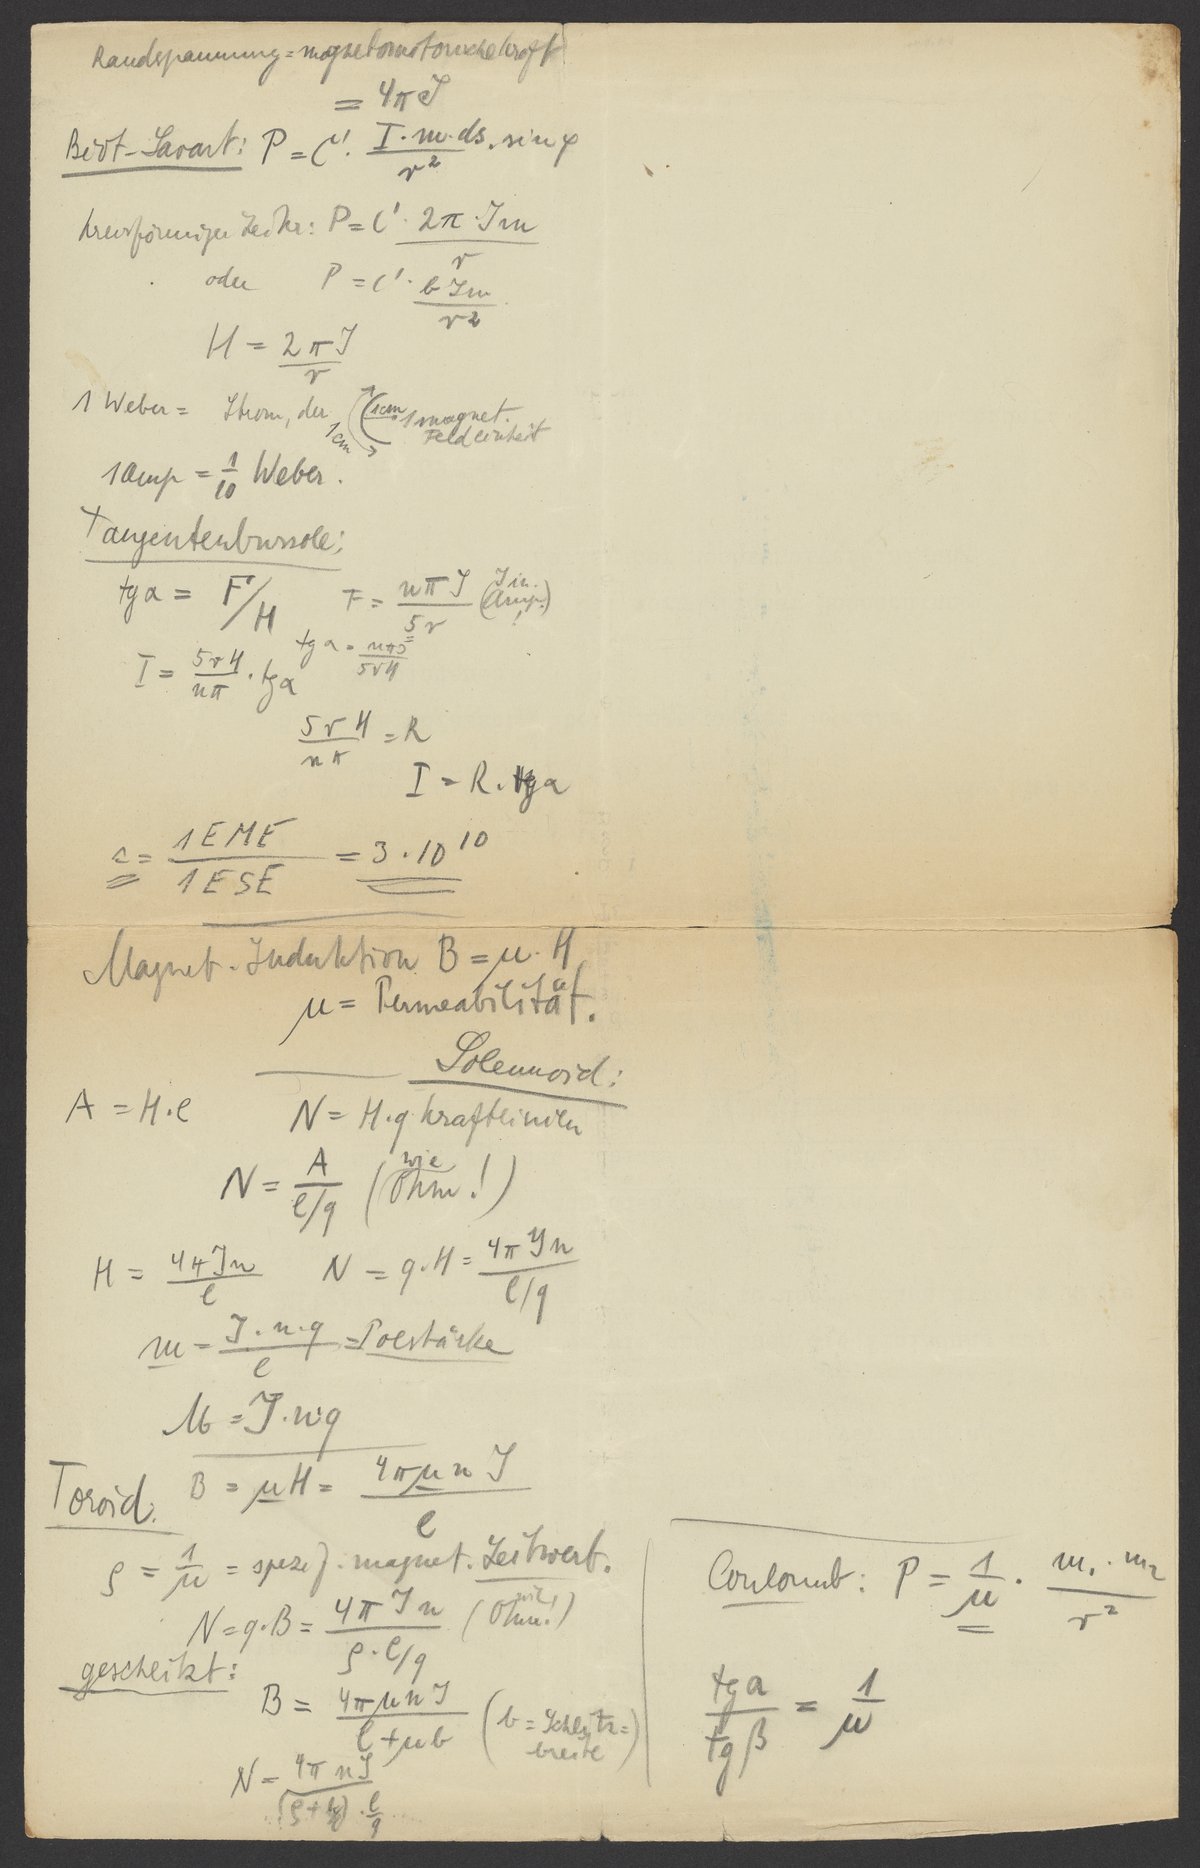 Randspannung = magnetomotorische Kraft
= 4πJ
Biot-Savart: P = C'. I.m.ds/r² . sin φ
kreisförmiger Leiter: P = C'. 2π.Jm/r
oder P = C'. b Jm/r²
H = 2πJ/r
1 Weber = Strom, der 1cm 1cm 1 magnet.
Feldeinheit
1 Amp = 1/10 Weber.
Tangentenbussole:
tg α = F/H F = nπJ/5r (J in Amp.!)
tg α = nπJ/5rH
I = 5rH/nπ . tg α
5rH/nπ = R
I = R. tg α
c = 1 EME/1 ESE = 3.10¹⁰
Magnet. Induktion B = μ. H
μ = Permeabilität.
Solennoid:
A = H.l N = H.q Kraftlinien
N = A/l/q (wie Ohm!)
H = 4πJn/l N = q.H = 4πJn/l/q
m = J.n.q/l = Polstärke
M = J.n.q
Toroid: B = μH = 4πμnJ/l
ρ = 1/μ = spezif. magnet. Leitwert.
N = q.B = 4πJn/ρ.l/q (wie Ohm!)
geschlitzt:
B = 4πμnJ/l+μb (b = Schlitz=
breite)
N = 4πnJ/
Coulomb: P = 1/μ . m₁.m₂/r²
tg α/tg β = 1/μ